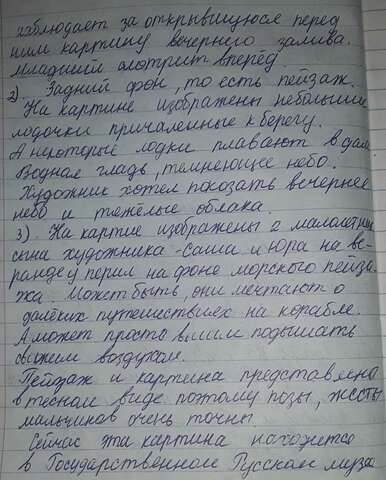 наблюдает за открывшуюся перед
ним картину вечернего залива.
Младший смотрит вперёд.
2). Задний фон, то есть пейзаж.
На картине изображены небольшие
лодочки причаленные к берегу.
А некоторые лодки плавают в дали
Водная гладь, темнеющее небо.
Художник хотел показать вечернее
небо и тяжёлые облака.
3). На картие изображены 2 малолетних
сына художника - Саша и Юра на ве-
ранде у перил на фоне морского пейза-
жа. Может быть, они мечтают о
далёких путешествиях на корабле.
А может просто вышли подышать
свежим воздухом.
Пейзаж и картина представлена
в тесном виде поэтому позы, жесты
мальчиков очень точны.
Сейчас эта картина находится
в Государственном Русском музее